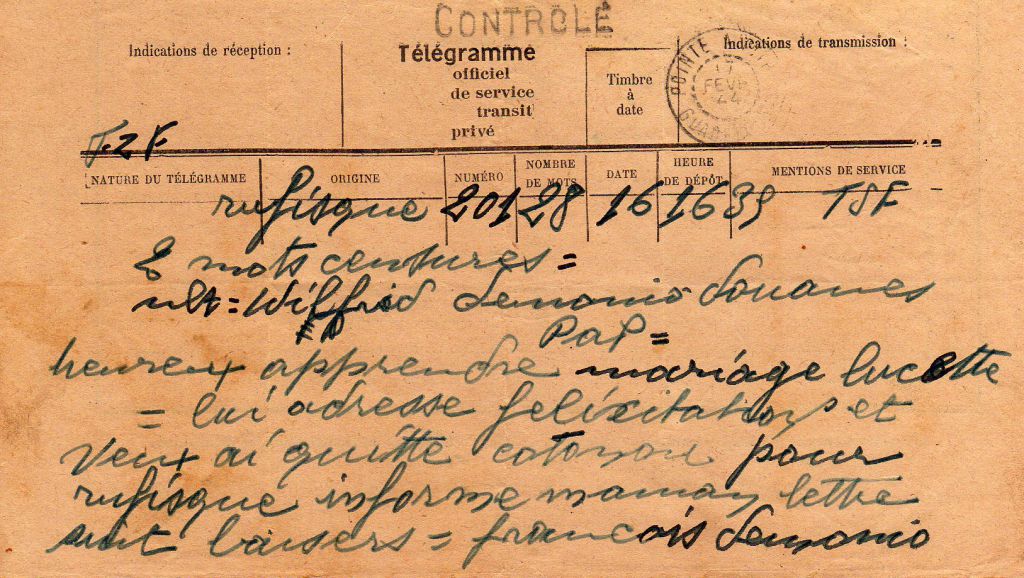 CONTRÔLE
Indications de réception :
Télégramme
officiel
de service
transit
privé
Timbre
à
date
Indications de transmission :
POINTE
17
FEVR
44
T2F
NATURE DU TÉLÉGRAMME ORIGINE NUMÉRO NOMBRE DE MOTS DATE HEURE DE DÉPÔT MENTIONS DE SERVICE
rufisque 201 28 16 1639 TSF
2 mots censures =
nlt = Wilfrid douanes
PaP =
heureux apprendre mariage lucette
= lui adresse felixitations et
veux ai quitte cotonou pour
rufisque informe maman lettre
suit baisers = francois